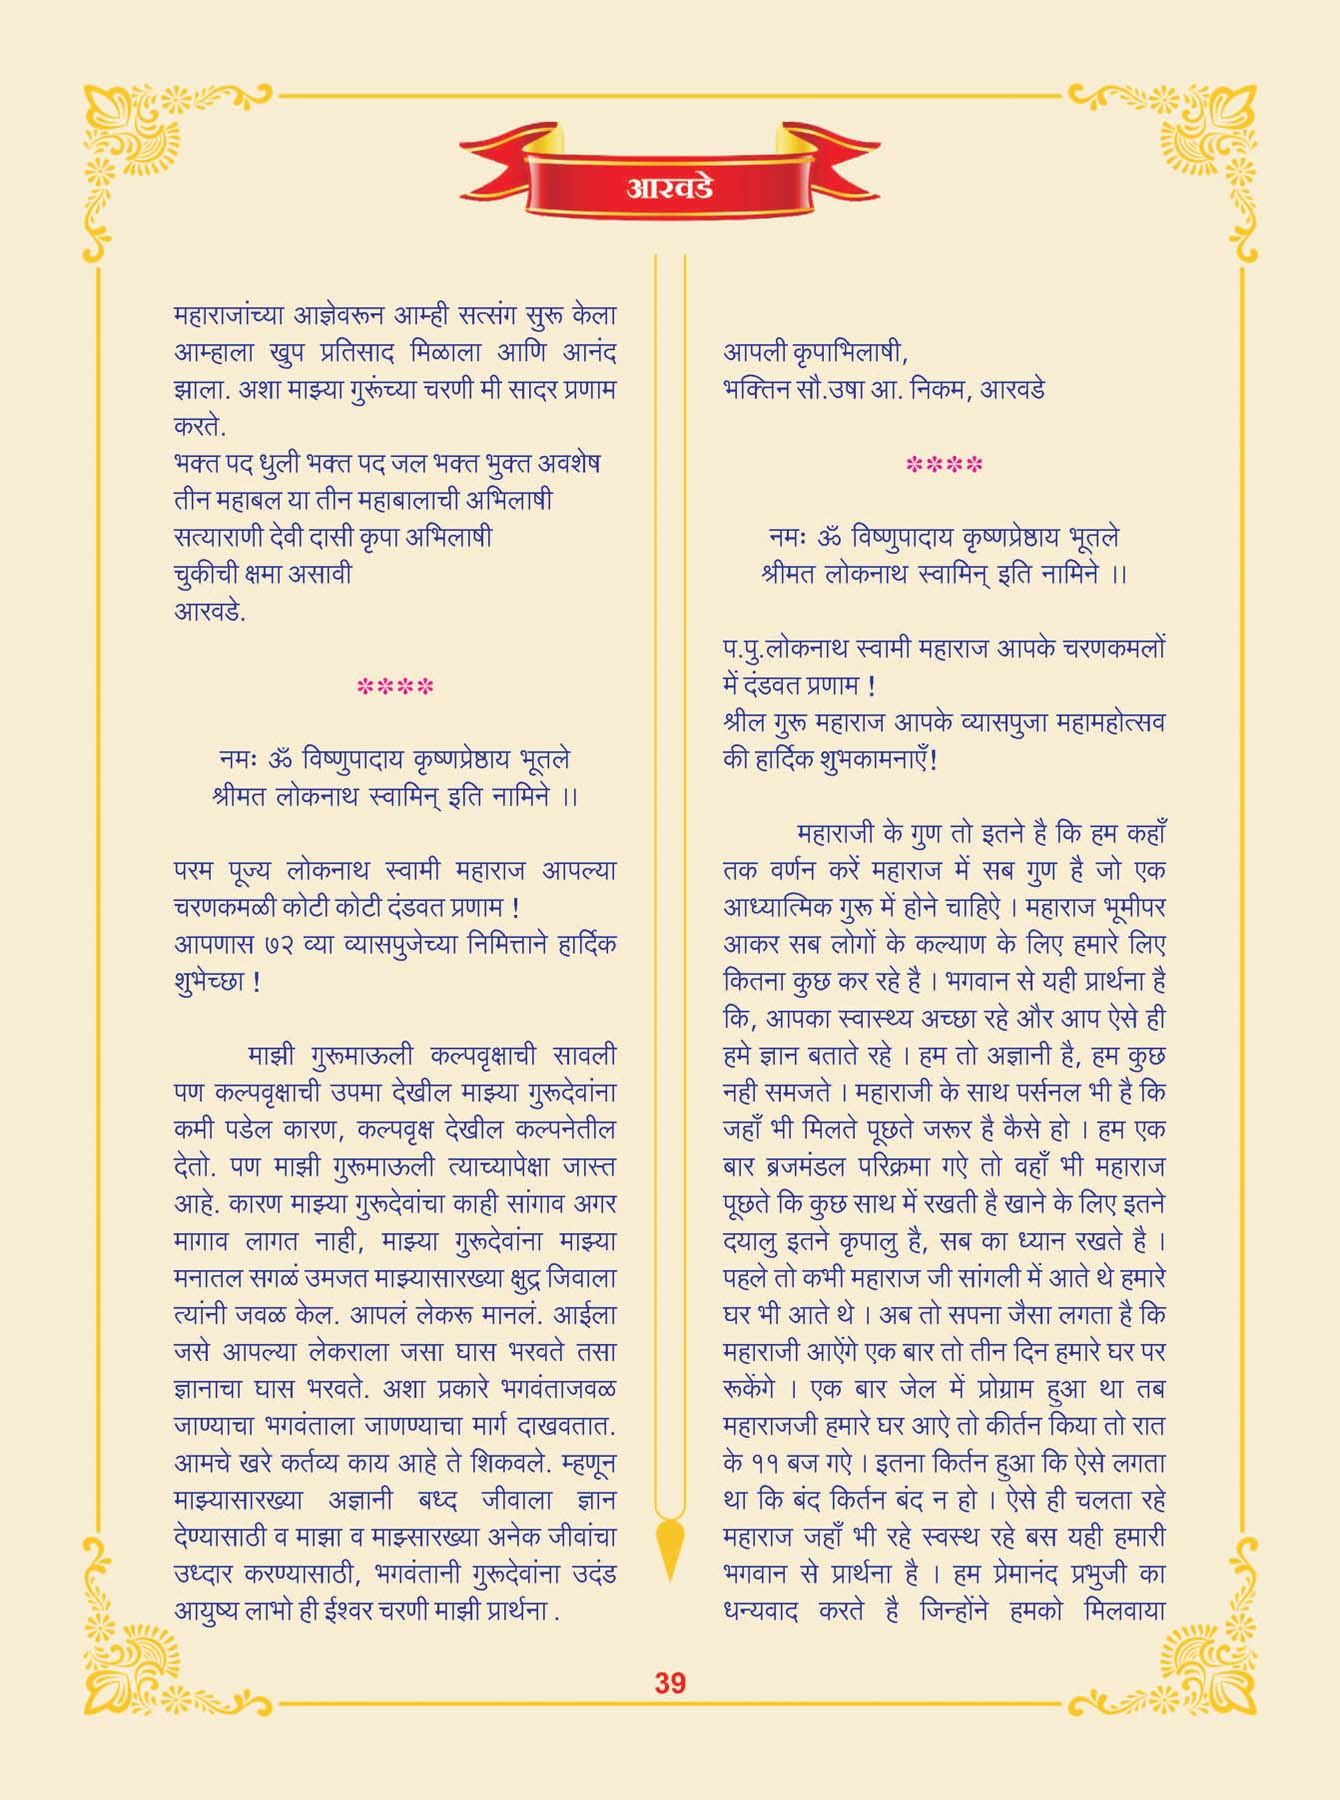 आरवडे
महाराजांच्या आज्ञेवरून आम्ही सत्संग सुरू केला
आम्हाला खुप प्रतिसाद मिळाला आणि आनंद
झाला. अशा माझ्या गुरूंच्या चरणी मी सादर प्रणाम
करते.
भक्त पद धुली भक्त पद जल भक्त भुक्त अवशेष
तीन महाबल या तीन महाबालाची अभिलाषी
सत्याराणी देवी दासी कृपा अभिलाषी
चुकीची क्षमा असावी
आरवडे.
****
नमः ॐ विष्णुपादाय कृष्णप्रेष्ठाय भूतले
श्रीमत लोकनाथ स्वामिन् इति नामिने ।।
परम पूज्य लोकनाथ स्वामी महाराज आपल्या
चरणकमळी कोटी कोटी दंडवत प्रणाम !
आपणास ७२ व्या व्यासपुजेच्या निमित्ताने हार्दिक
शुभेच्छा !
माझी गुरूमाऊली कल्पवृक्षाची सावली
पण कल्पवृक्षाची उपमा देखील माझ्या गुरूदेवांना
कमी पडेल कारण, कल्पवृक्ष देखील कल्पनेतील
देतो. पण माझी गुरूमाऊली त्याच्यापेक्षा जास्त
आहे. कारण माझ्या गुरूदेवांचा काही सांगाव अगर
मागाव लागत नाही, माझ्या गुरूदेवांना माझ्या
मनातल सगळं उमजत माझ्यासारख्या क्षुद्र जिवाला
त्यांनी जवळ केल. आपलं लेकरू मानलं. आईला
जसे आपल्या लेकराला जसा घास भरवते तसा
ज्ञानाचा घास भरवते. अशा प्रकारे भगवंताजवळ
जाण्याचा भगवंताला जाणण्याचा मार्ग दाखवतात.
आमचे खरे कर्तव्य काय आहे ते शिकवले. म्हणून
माझ्यासारख्या अज्ञानी बध्द जीवाला ज्ञान
देण्यासाठी व माझा व माझ्सारख्या अनेक जीवांचा
उध्दार करण्यासाठी, भगवंतानी गुरूदेवांना उदंड
आयुष्य लाभो ही ईश्वर चरणी माझी प्रार्थना .
आपली कृपाभिलाषी,
भक्तिन सौ.उषा आ. निकम, आरवडे
****
नमः ॐ विष्णुपादाय कृष्णप्रेष्ठाय भूतले
श्रीमत लोकनाथ स्वामिन् इति नामिने ।।
प.पु.लोकनाथ स्वामी महाराज आपके चरणकमलों
में दंडवत प्रणाम !
श्रील गुरू महाराज आपके व्यासपुजा महामहोत्सव
की हार्दिक शुभकामनाएँ!
महाराजी के गुण तो इतने है कि हम कहाँ
तक वर्णन करें महाराज में सब गुण है जो एक
आध्यात्मिक गुरू में होने चाहिऐ । महाराज भूमीपर
आकर सब लोगों के कल्याण के लिए हमारे लिए
कितना कुछ कर रहे है । भगवान से यही प्रार्थना है
कि, आपका स्वास्थ्य अच्छा रहे और आप ऐसे ही
हमे ज्ञान बताते रहे । हम तो अज्ञानी है, हम कुछ
नही समजते । महाराजी के साथ पर्सनल भी है कि
जहाँ भी मिलते पूछते जरूर है कैसे हो । हम एक
बार ब्रजमंडल परिक्रमा गऐ तो वहाँ भी महाराज
पूछते कि कुछ साथ में रखती है खाने के लिए इतने
दयालु इतने कृपालु है, सब का ध्यान रखते है ।
पहले तो कभी महाराज जी सांगली में आते थे हमारे
घर भी आते थे । अब तो सपना जैसा लगता है कि
महाराजी आऐंगे एक बार तो तीन दिन हमारे घर पर
रूकेंगे । एक बार जेल में प्रोग्राम हुआ था तब
महाराजजी हमारे घर आऐ तो कीर्तन किया तो रात
के ११ बज गऐ । इतना किर्तन हुआ कि ऐसे लगता
था कि बंद किर्तन बंद न हो । ऐसे ही चलता रहे
महाराज जहाँ भी रहे स्वस्थ रहे बस यही हमारी
भगवान से प्रार्थना है । हम प्रेमानंद प्रभुजी का
धन्यवाद करते है जिन्होंने हमको मिलवाया
39